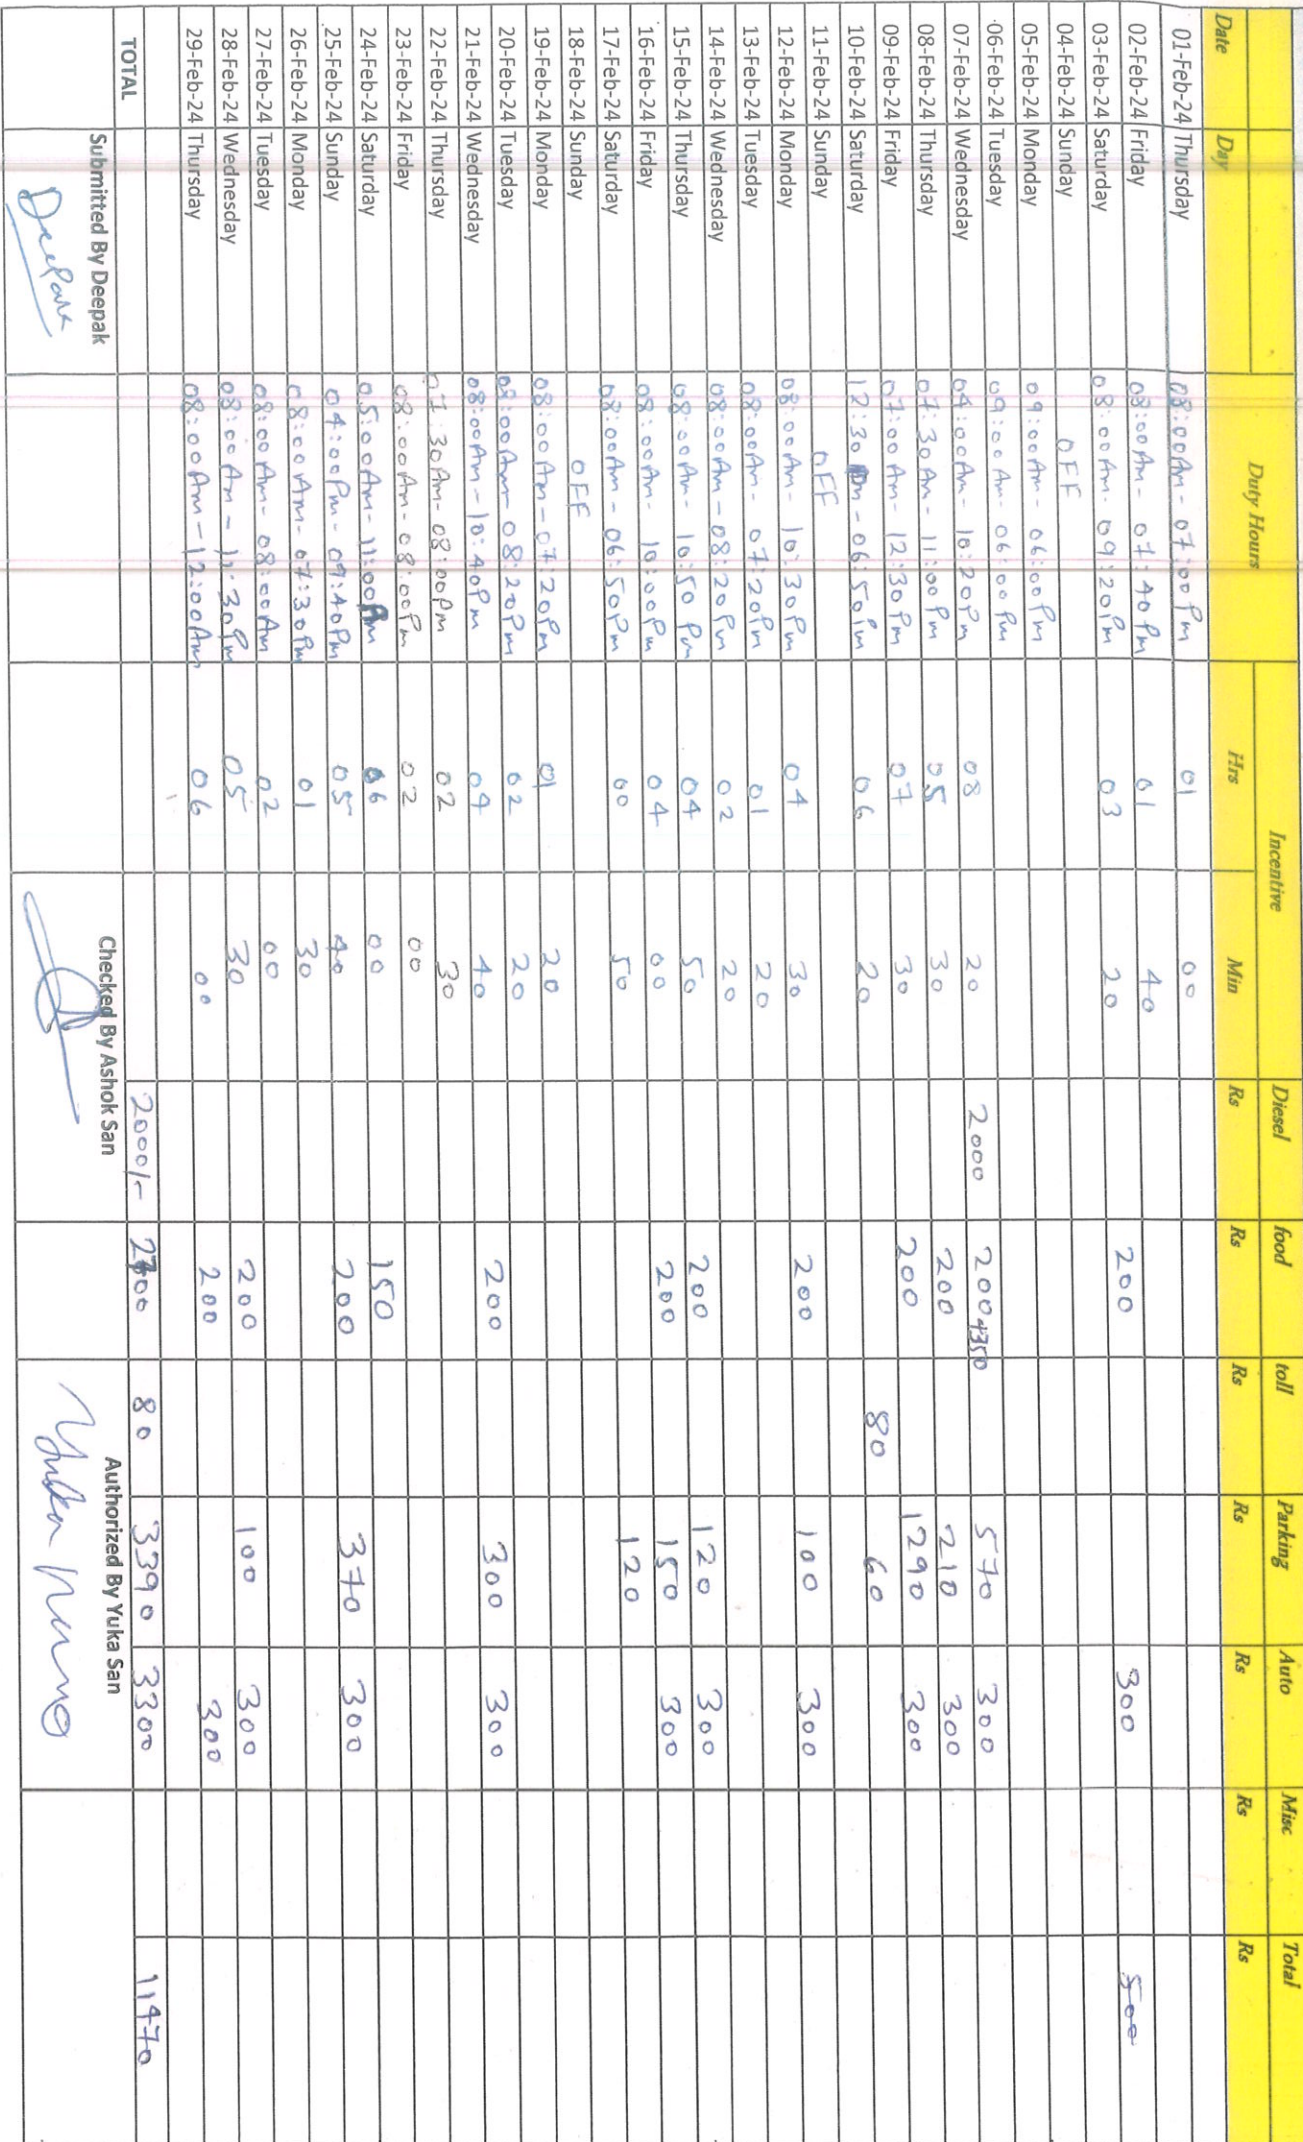 Incentive Diesel food toll Parking Auto Misc Total
Date Day Duty Hours Hrs Min Rs Rs Rs Rs Rs Rs Rs
01-Feb-24 Thursday 08:00Am - 07:00Pm 01 00
02-Feb-24 Friday 08:00Am - 07:40Pm 01 40
03-Feb-24 Saturday 08:00Am - 09:20Pm 03 20 200 300 500
04-Feb-24 Sunday OFF
05-Feb-24 Monday 09:00Am - 06:00Pm
06-Feb-24 Tuesday 09:00Am - 06:00Pm
07-Feb-24 Wednesday 04:00Am - 10:20Pm 08 20 2000 200+350 570 300
08-Feb-24 Thursday 07:30Am - 11:00Pm 05 30 200 210 300
09-Feb-24 Friday 07:00Am - 12:30Pm 07 30 200 1290 300
10-Feb-24 Saturday 12:30Pm - 06:50Pm 06 20 80 60
11-Feb-24 Sunday OFF
12-Feb-24 Monday 08:00Am - 10:30Pm 04 30 200 100 300
13-Feb-24 Tuesday 08:00Am - 07:20Pm 01 20
14-Feb-24 Wednesday 08:00Am - 08:20Pm 02 20
15-Feb-24 Thursday 08:00Am - 10:50Pm 04 50 200 120 300
16-Feb-24 Friday 08:00Am - 10:00Pm 04 00 200 150 300
17-Feb-24 Saturday 08:00Am - 06:50Pm 00 50 120
18-Feb-24 Sunday OFF
19-Feb-24 Monday 08:00Am - 07:20Pm 01 20
20-Feb-24 Tuesday 08:00Am - 08:20Pm 02 20
21-Feb-24 Wednesday 08:00Am - 10:40Pm 04 40 200 300 300
22-Feb-24 Thursday 07:30Am - 08:00Pm 02 30
23-Feb-24 Friday 08:00Am - 08:00Pm 02 00
24-Feb-24 Saturday 05:00Am - 11:00Am 06 00 150
25-Feb-24 Sunday 04:00Pm - 09:40Pm 05 40 200 370 300
26-Feb-24 Monday 08:00Am - 07:30Pm 01 30
27-Feb-24 Tuesday 08:00Am - 08:00Am 02 00
28-Feb-24 Wednesday 08:00Am - 11:30Pm 05 30 200 100 300
29-Feb-24 Thursday 08:00Am - 12:00Am 06 00 200 300
TOTAL 2000/- 2700 80 3390 3300 11470
Submitted By Deepak Checked By Ashok San Authorized By Yuka San
Deepak